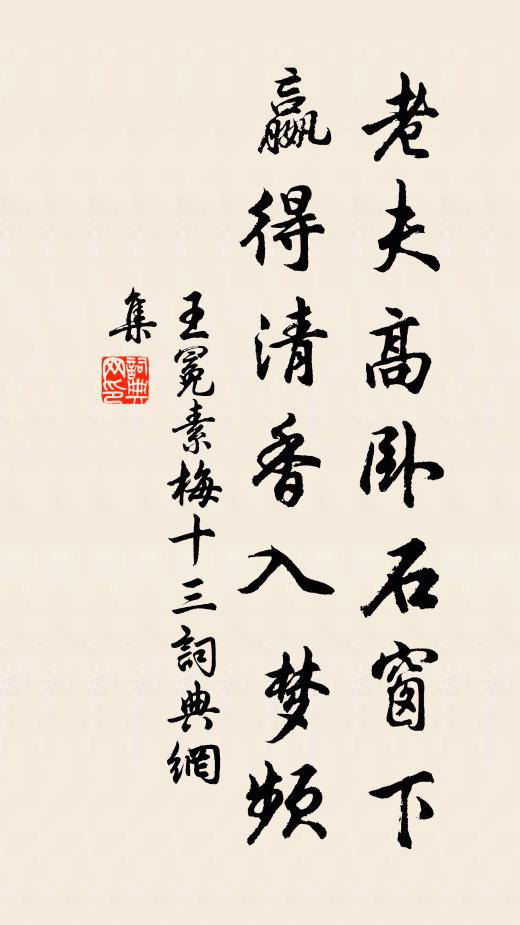 老夫高卧石窗下
赢得清香入梦频
王冕素梅十三詞典網
集
詞典網印